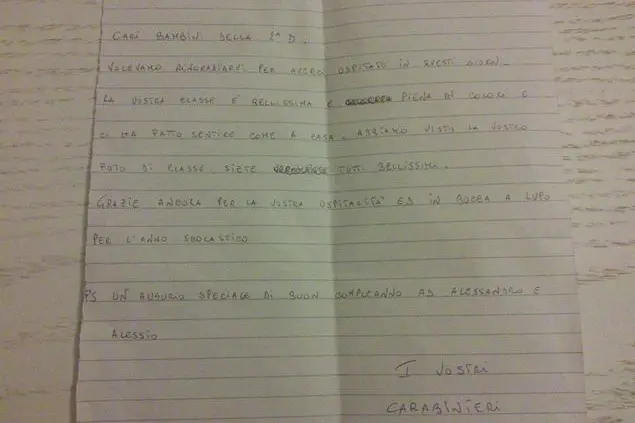 CARI BAMBINI DELLA 2^ D.
VOLEVAMO RINGRAZIARVI PER AVERCI OSPITATO IN QUESTI GIORNI.
LA VOSTRA CLASSE E' BELLISSIMA E PIENA DI COLORI E
CI HA FATTO SENTIRE COME A CASA. ABBIAMO VISTO LA VOSTRA
FOTO DI CLASSE, SIETE TUTTI BELLISSIMI.
GRAZIE ANCORA PER LA VOSTRA OSPITALITÀ ED IN BOCCA A LUPO
PER L'ANNO SCOLASTICO
PS UN AUGURIO SPECIALE DI BUON COMPLEANNO AD ALESSANDRO E
ALESSIO
I VOSTRI
CARABINIERI